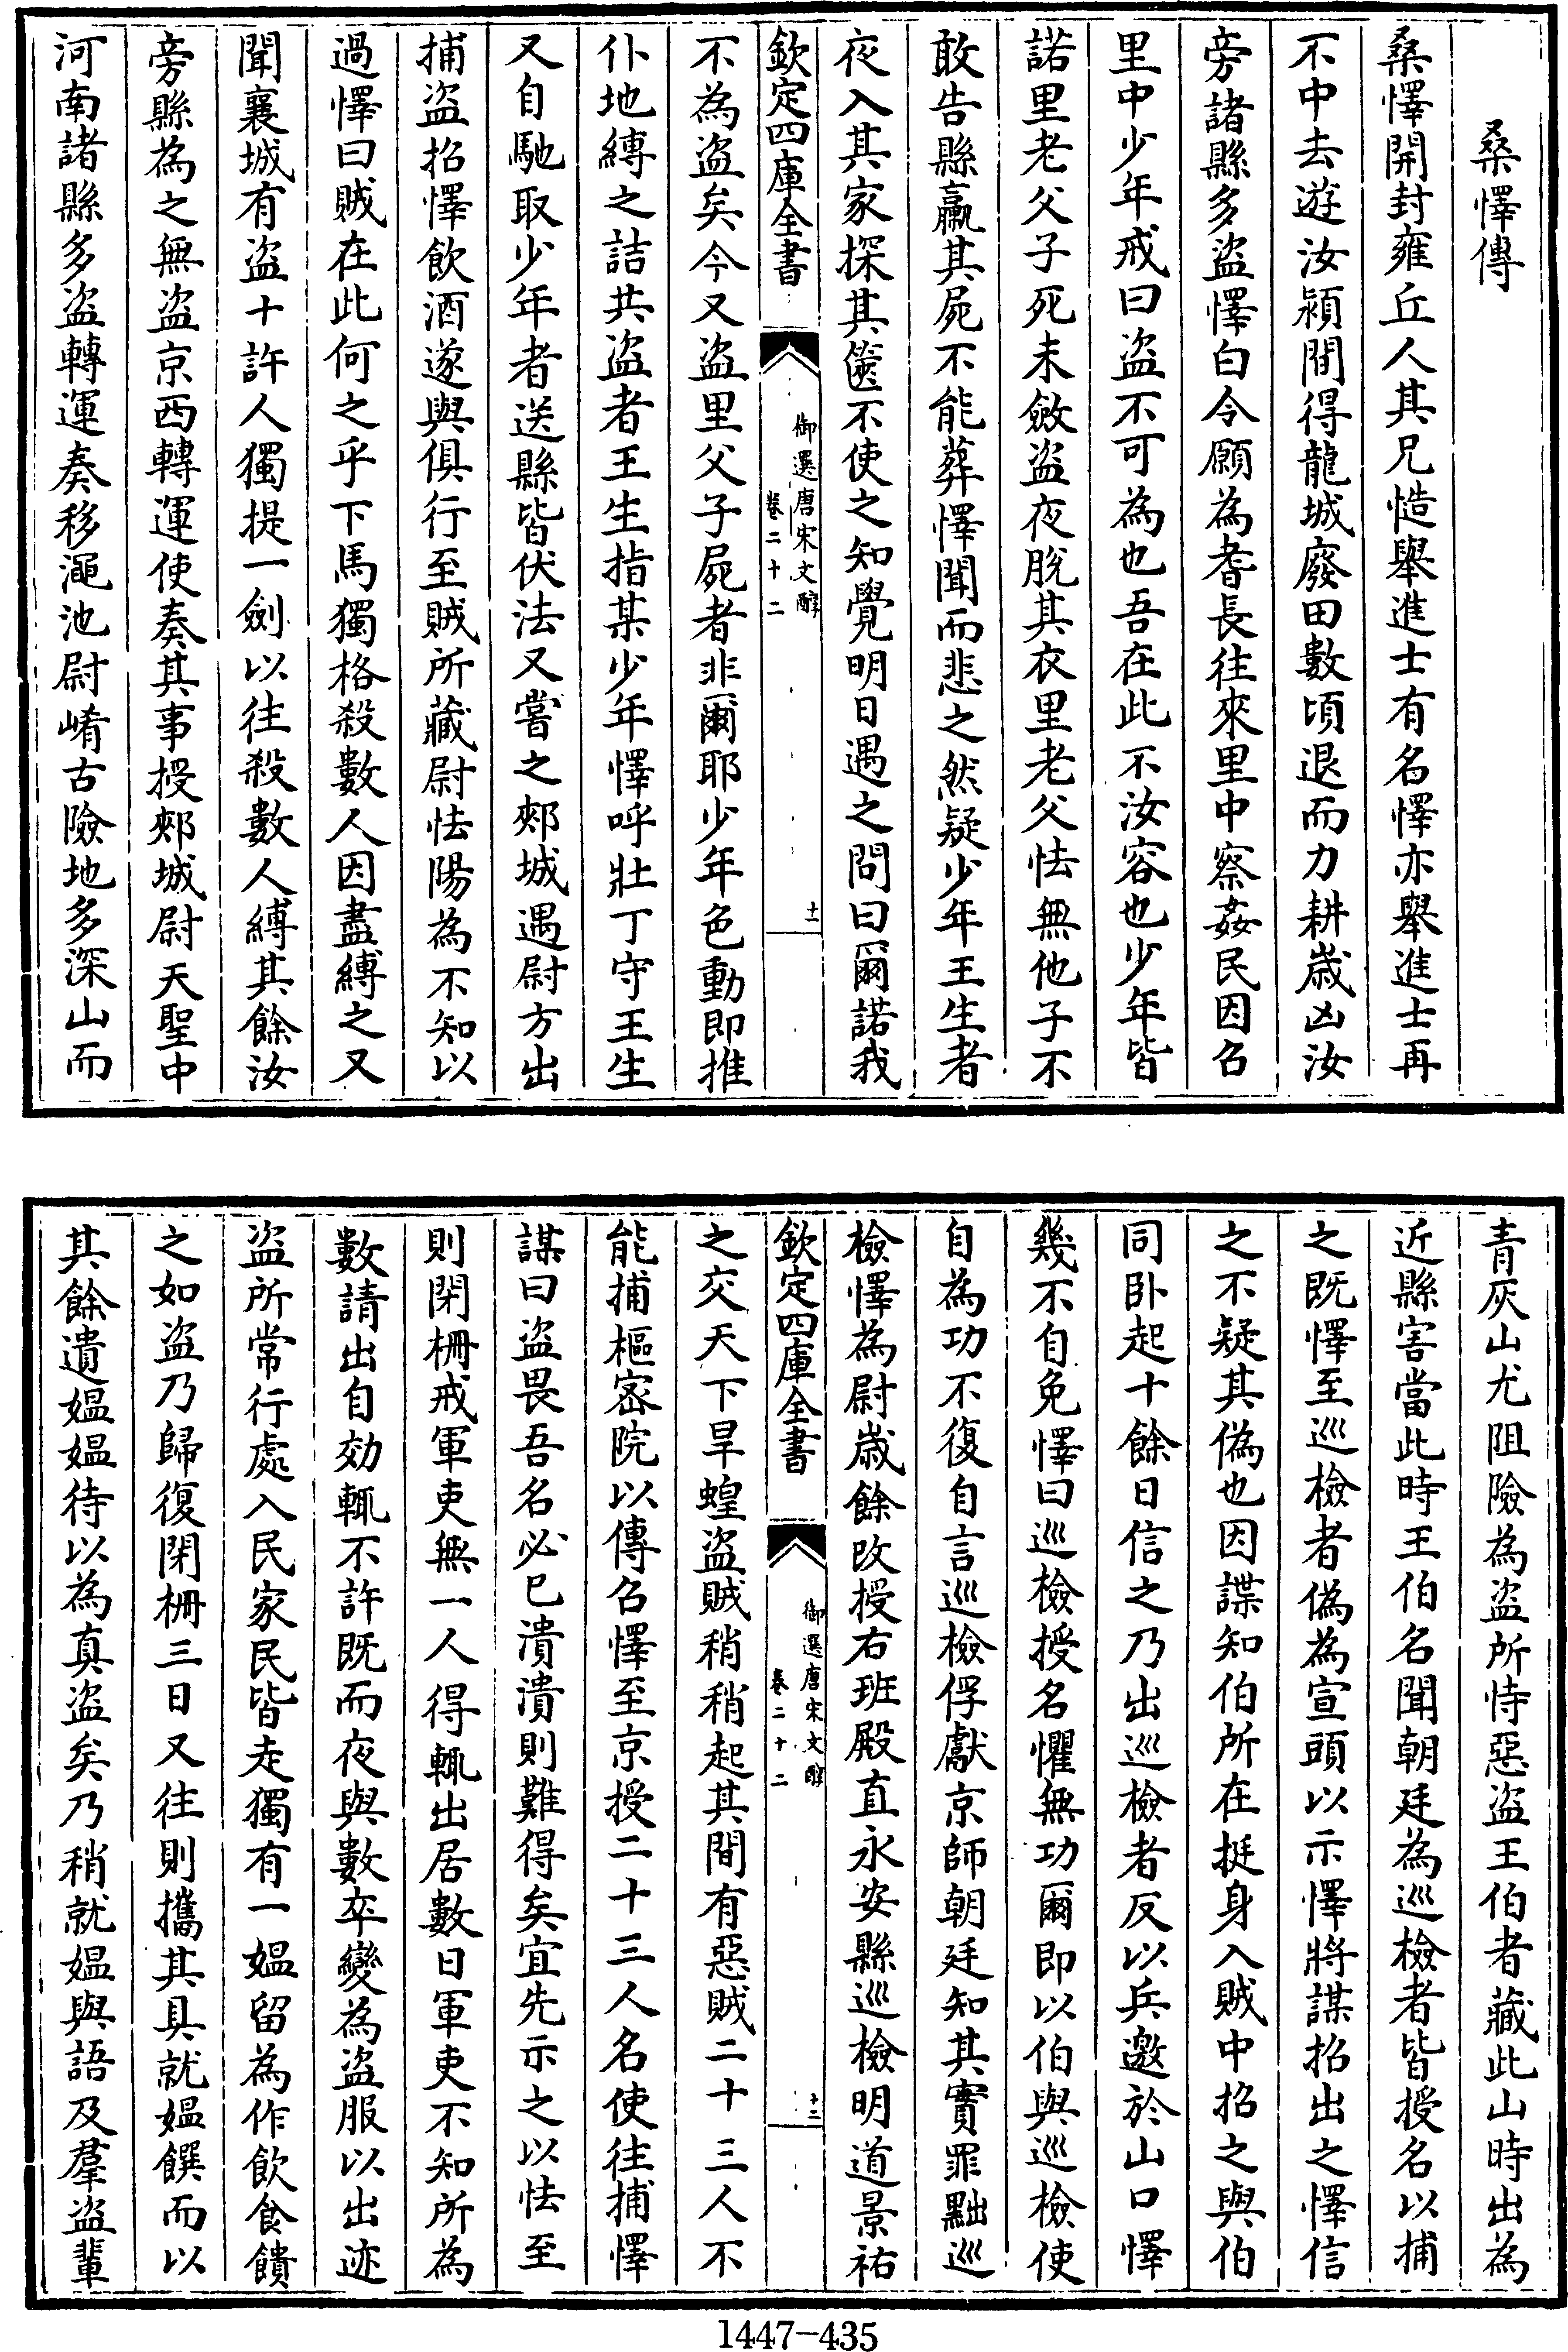 桑懌傳
桑懌開封雍丘人其兄慥舉進士有名懌亦舉進士再
不中去遊汝潁間得龍城廢田數頃退而力耕歲凶汝
旁諸縣多盜懌白令願為耆長往來里中察姦民因召
里中少年戒曰盜不可為也吾在此不汝容也少年皆
諾里老父子死未斂盜夜脫其衣里老父怯無他子不
敢告縣臝其屍不能葬懌聞而悲之然疑少年王生者
夜入其家探其篋不使之知覺明日遇之問曰爾諾我
欽定四庫全書
御選唐宋文醇
卷二十二
十一
不為盜矣今又盜里父子屍者非爾耶少年色動即推
仆地縛之詰共盜者王生指某少年懌呼壯丁守王生
又自馳取少年者送縣皆伏法又嘗之郟城遇尉方出
捕盜招懌飲酒遂與俱行至賊所藏尉怯陽為不知以
過懌曰賊在此何之乎下馬獨格殺數人因盡縛之又
聞襄城有盜十許人獨提一劍以往殺數人縛其餘汝
旁縣為之無盜京西轉運使奏其事授郟城尉天聖中
河南諸縣多盜轉運奏移澠池尉崤古險地多深山而
青灰山尤阻險為盜所恃惡盜王伯者藏此山時出為
近縣害當此時王伯名聞朝廷為巡檢者皆授名以捕
之既懌至巡檢者偽為宣頭以示懌將謀招出之懌信
之不疑其偽也因諜知伯所在挺身入賊中招之與伯
同臥起十餘日信之乃出巡檢者反以兵邀於山口懌
幾不自免懌曰巡檢授名懼無功爾即以伯與巡檢使
自為功不復自言巡檢俘獻京師朝廷知其實罪黜巡
檢懌為尉歲餘改授右班殿直永安縣巡檢明道景祐
欽定四庫全書
御選唐宋文醇
卷二十二
十二
之交天下旱蝗盜賊稍稍起其間有惡賊二十三人不
能捕樞密院以傳召懌至京授二十三人名使往捕懌
謀曰盜畏吾名必已潰潰則難得矣宜先示之以怯至
則閉柵戒軍吏無一人得輒出居數日軍吏不知所為
數請出自効輒不許既而夜與數卒變為盜服以出迹
盜所常行處入民家民皆走獨有一媼留為作飲食饋
之如盜乃歸復閉柵三日又往則攜其具就媼饌而以
其餘遺媼媼待以為真盜矣乃稍就媼與語及羣盜輩
1447-435